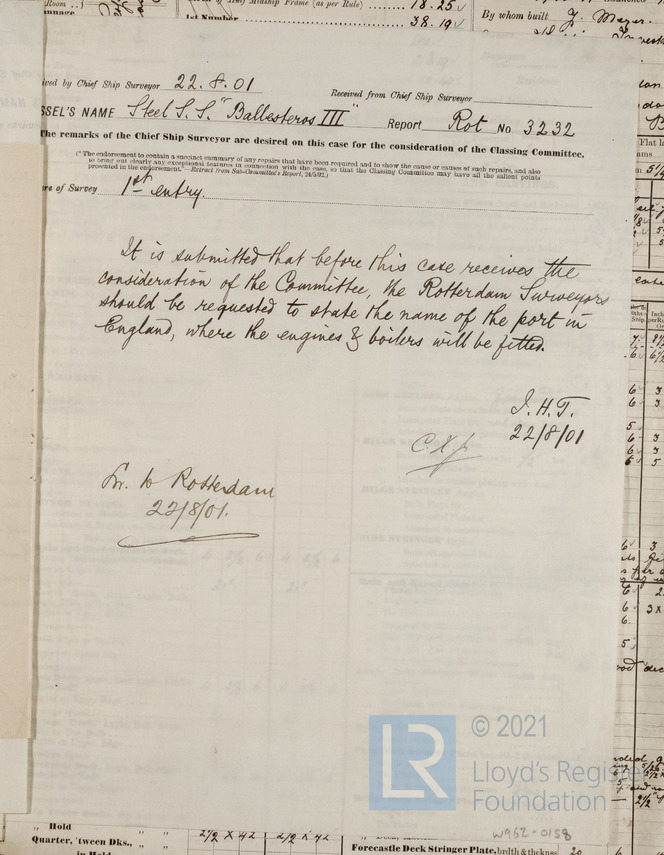 Midship Frame (as per Rule) 18.25
1st Number 38.19
By whom built J. Meyer
ived by Chief Ship Surveyor 22.8.01 Received from Chief Ship Surveyor
SSEL'S NAME Steel S.S. "Ballesteros III" Report Rot No 3232
The remarks of the Chief Ship Surveyor are desired on this case for the consideration of the Classing Committee.
("The endorsement to contain a succinct summary of any repairs that have been required and to show the cause or causes of such repairs, and also
to bring out clearly any exceptional features in connection with the case, so that the Classing Committee may have all the salient points
presented in the endorsement."—Extract from Sub-Committee's Report, 24/5/92.)
re of Survey 1st entry.
It is submitted that before this case receives the
consideration of the Committee, the Rotterdam Surveyors
should be requested to state the name of the port in
England, where the engines & boilers will be fitted.
J.H.T.
22/8/01
Rotterdam
22/8/01.
© 2021
LR
Lloyd's Register
Foundation
W962-0158
„ Hold
Quarter, 'tween Dks., „ „ 2½ X 42 2½ X 42
in Hold
Forecastle Deck Stringer Plate, brdth & thckns 20